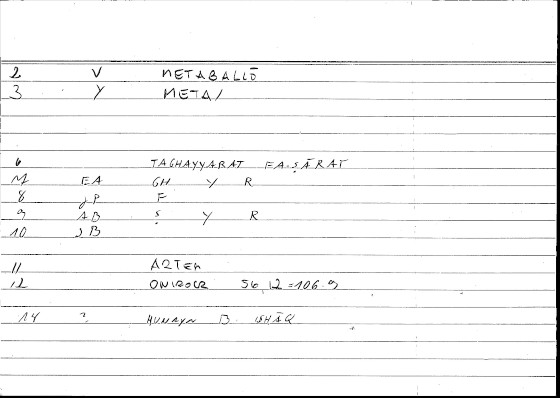 2 V METABALLŌ
3 Y META/
6 TAGHAYYARAT FA-ṢĀRAT
EA GH Y R
8 JP F
9 AB Ṣ Y R
10 JB
11 ARTEM
12 ONIROCR 56,12=106.9
14 ? HUNAYN B. ISHĀQ